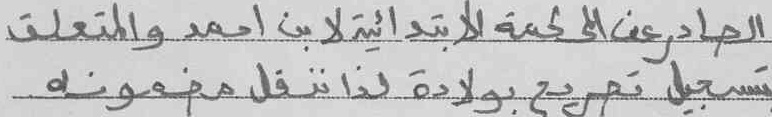 الصادر عن المحكمة الابتدائية لابن احمد والمتعلق
بتسجيل تصريح بولادة لذا ننقل مضمونه